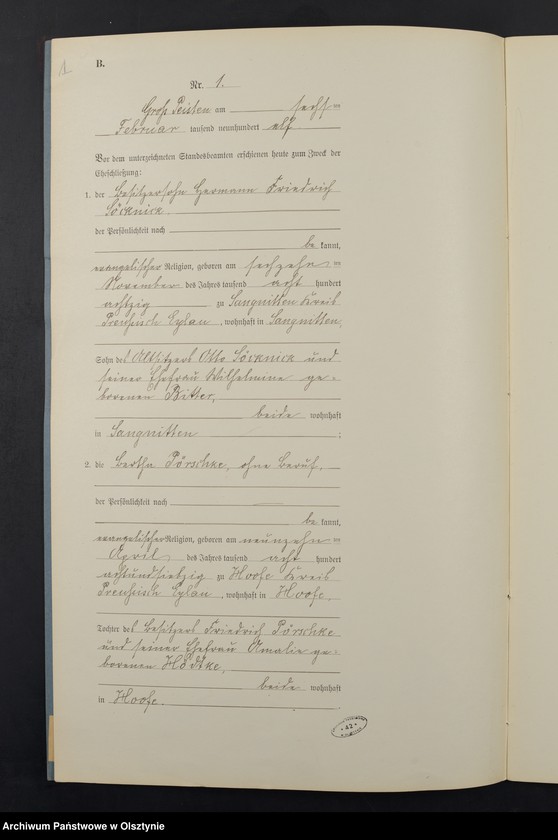 1
B.
Nr. 1.
Groß Peisten am sechs=
Februar tausend neunhundert elf
Vor dem unterzeichneten Standesbeamten erschienen heute zum Zweck der
Eheschließung:
1. der Besitzersohn Hermann Friedrich
Söcknick.
der Persönlichkeit nach
be kannt,
evangelischer Religion, geboren am sechzehn=
November des Jahres tausend acht hundert
achtzig zu Sangnitten Kreis
Preußisch Eylau, wohnhaft in Sangnitten,
Sohn des Altsitzers Otto Söcknick und
seiner Ehefrau Wilhelmine ge=
borenen Ritter,
beide wohnhaft
in Sangnitten ;
2. die Bertha Pörschke, ohne Beruf,
der Persönlichkeit nach
be kannt,
evangelischer Religion, geboren am neunzehn=
April des Jahres tausend acht hundert
achtundsiebzig zu Hoofe Kreis
Preußisch Eylau, wohnhaft in Hoofe,
Tochter des Besitzers Friedrich Pörschke
und seiner Ehefrau Amalie ge=
borenen Hödtke,
beide wohnhaft
in Hoofe.
42
Archiwum Państwowe w Olsztynie